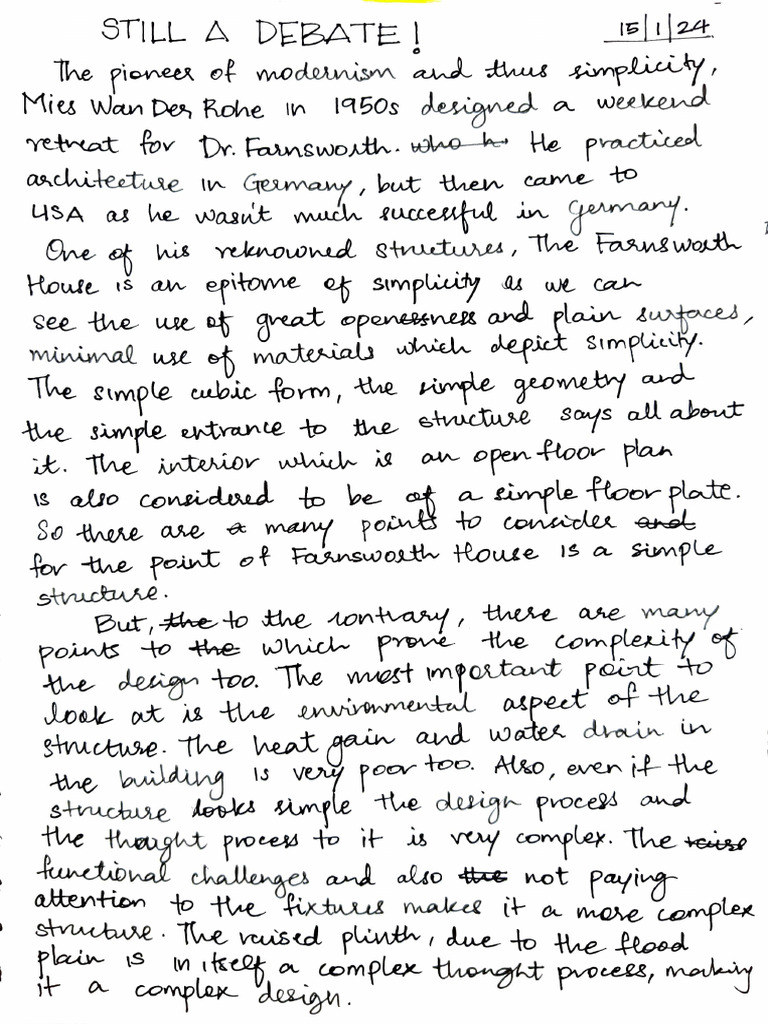 STILL A DEBATE! 15/1/24
The pioneer of modernism and thus simplicity,
Mies Wan Der Rohe in 1950s designed a weekend
retreat for Dr. Farnsworth. who h He practiced
architecture in Germany, but then came to
USA as he wasn't much successful in Germany.
One of his reknowned structures, The Farnsworth
House is an epitome of simplicity as we can
see the use of great openessness and plain surfaces,
minimal use of materials which depict simplicity.
The simple cubic form, the simple geometry and
the simple entrance to the structure says all about
it. The interior which is an open floor plan
is also considered to be of a simple floor plate.
So there are a many points to consider and
for the point of Farnsworth House is a simple
structure.
But, the to the contrary, there are many
points to the which prove the complexity of
the design too. The most important point to
look at is the environmental aspect of the
structure. The heat gain and water drain in
the building is very poor too. Also, even if the
structure looks simple the design process and
the thought process to it is very complex. The
functional challenges and also the not paying
attention to the fixtures makes it a more complex
structure. The raised plinth, due to the flood
plain is in itself a complex thought process, making
it a complex design.